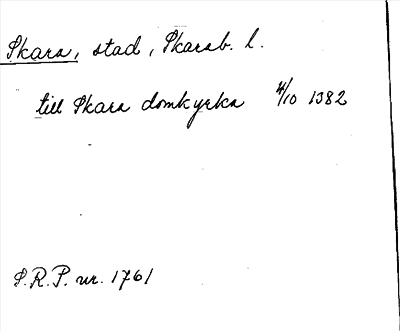 Skara, stad, Skarab. l.
till Skara domkyrka 4/10 1382
S.R.P. nr. 1761